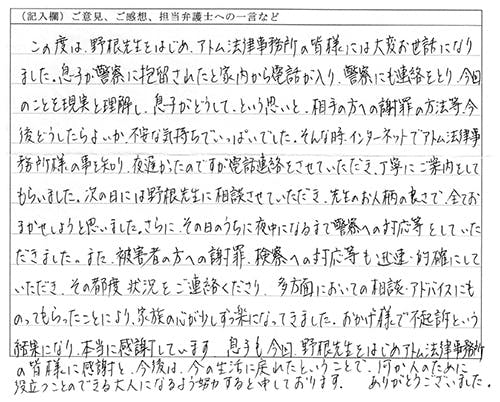 （記入欄）ご意見、ご感想、担当弁護士への一言など
この度は、野根先生をはじめ、アトム法律事務所の皆様には大変お世話になり
ました。息子が警察に拘留されたと家内から電話が入り、警察にも連絡をとり、今回
のことを現実と理解し、息子がどうして、という思いと、相手の方への謝罪の方法等、今
後どうしたらよいか、不安な気持ちでいっぱいでした。そんな時、インターネットでアトム法律事
務所様の事を知り、夜遅かったのですが電話連絡をさせていただき、丁寧にご案内をして
もらいました。次の日には野根先生に相談させていただき、先生のお人柄の良さで、全てお
まかせしようと思いました。さらに、その日のうちに夜中になるまで警察への対応等をしていた
だきました。また、被害者の方への謝罪、検察への対応等も迅速・的確にして
いただき、その都度、状況をご連絡くださり、多方面においての相談・アドバイスにも
のってもらったことにより、家族の心が少しずつ楽になってきました。おかげ様で不起訴という
結果になり、本当に感謝しています。息子も今回、野根先生をはじめアトム法律事務所
の皆様に感謝と、今後は、今の生活に戻れたということで、何か人のために
役立つことのできる大人になるよう努力すると申しております。 ありがとうございました。